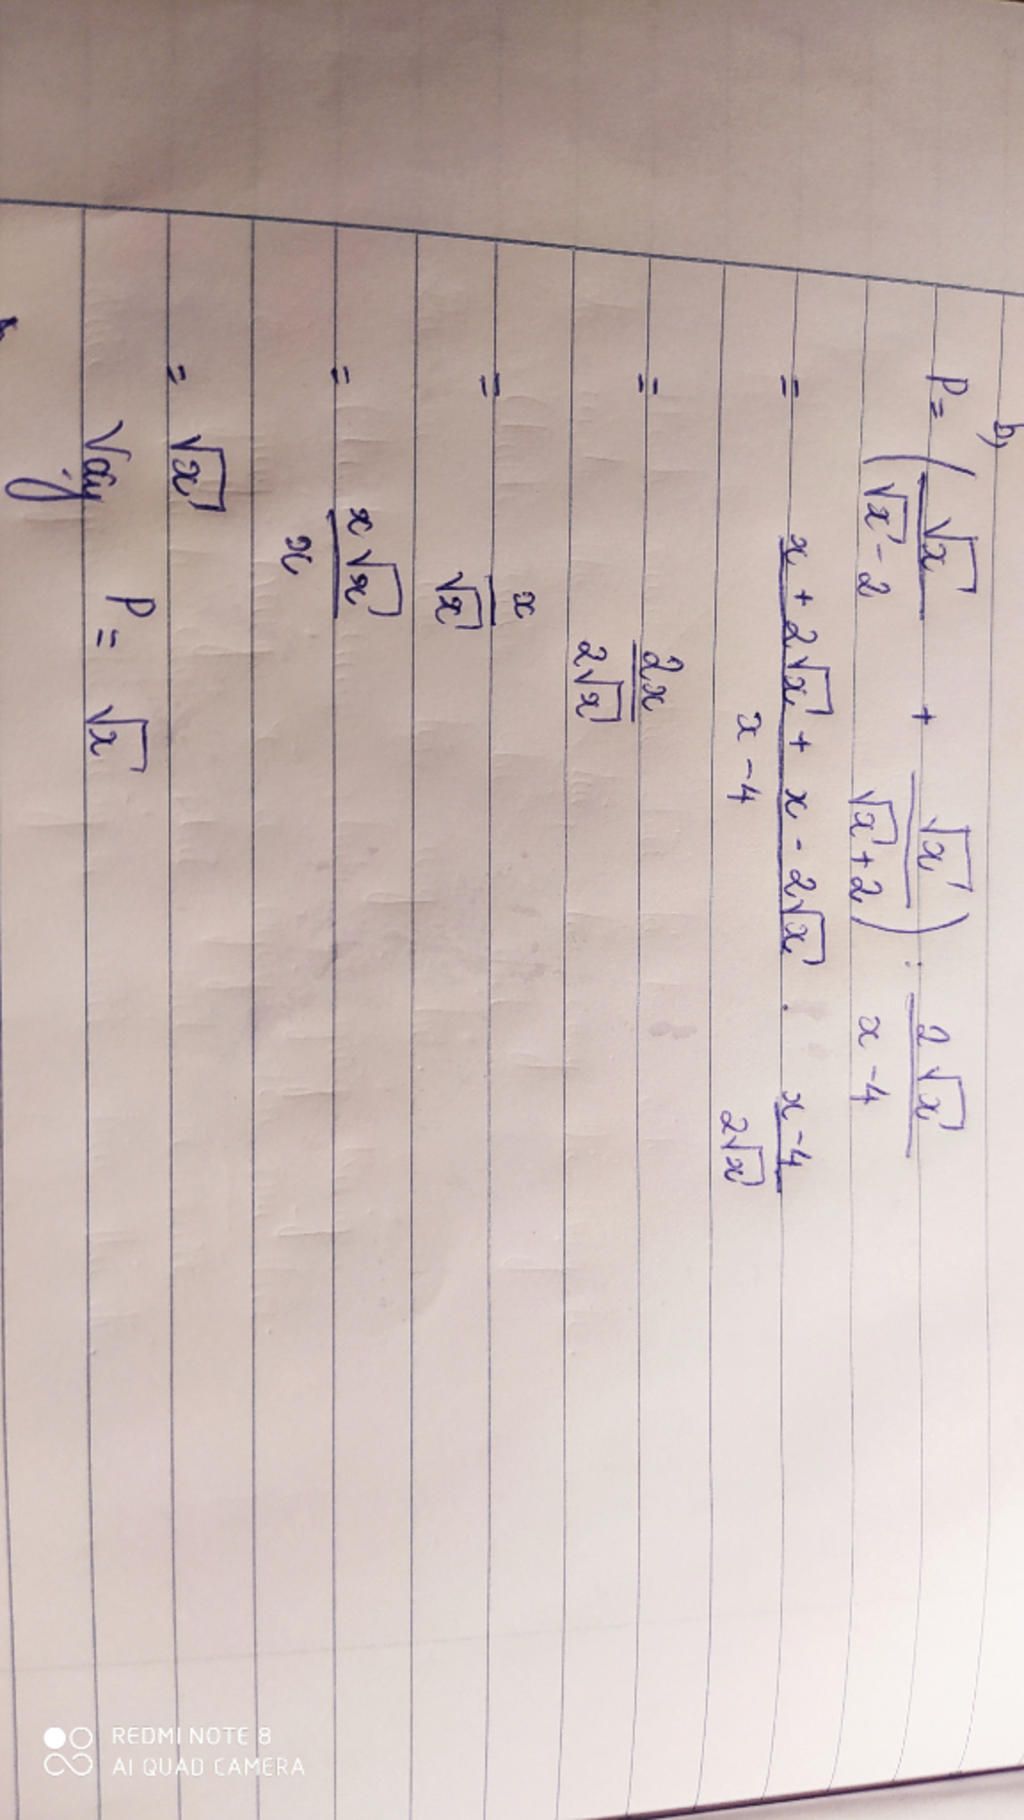 b,
P = ( √x / (√x - 2) + √x / (√x + 2) ) : 2√x / (x - 4)
= (x + 2√x + x - 2√x) / (x - 4) . (x - 4) / 2√x
= 2x / 2√x
= x / √x
= x√x / x
= √x
Vậy P = √x
REDMI NOTE 8
AI QUAD CAMERA